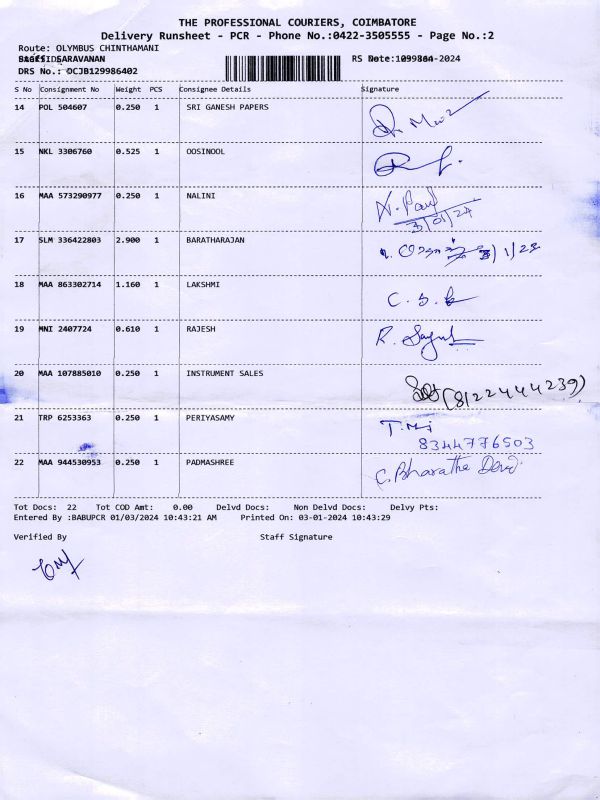 THE PROFESSIONAL COURIERS, COIMBATORE
Delivery Runsheet - PCR - Phone No.:0422-3505555 - Page No.:2
Route: OLYMBUS CHINTHAMANI
SARAVANAN
RS
DRS No.: DCJB129986402
S No Consignment No Weight PCS Consignee Details Signature
14 POL 504607 0.250 1 SRI GANESH PAPERS
15 NKL 3306760 0.525 1 OOSINOOL
16 MAA 573290977 0.250 1 NALINI
N. Paul
3/01/24
17 SLM 336422803 2.900 1 BARATHARAJAN
18 MAA 863302714 1.160 1 LAKSHMI
19 MNI 2407724 0.610 1 RAJESH
20 MAA 107885010 0.250 1 INSTRUMENT SALES
(8122444239)
21 TRP 6253363 0.250 1 PERIYASAMY
8344776503
22 MAA 944530953 0.250 1 PADMASHREE
C. Bharathe Devi
Tot Docs: 22 Tot COD Amt: 0.00 Delvd Docs: Non Delvd Docs: Delvy Pts:
Entered By :BABUPCR 01/03/2024 10:43:21 AM Printed On: 03-01-2024 10:43:29
Verified By Staff Signature